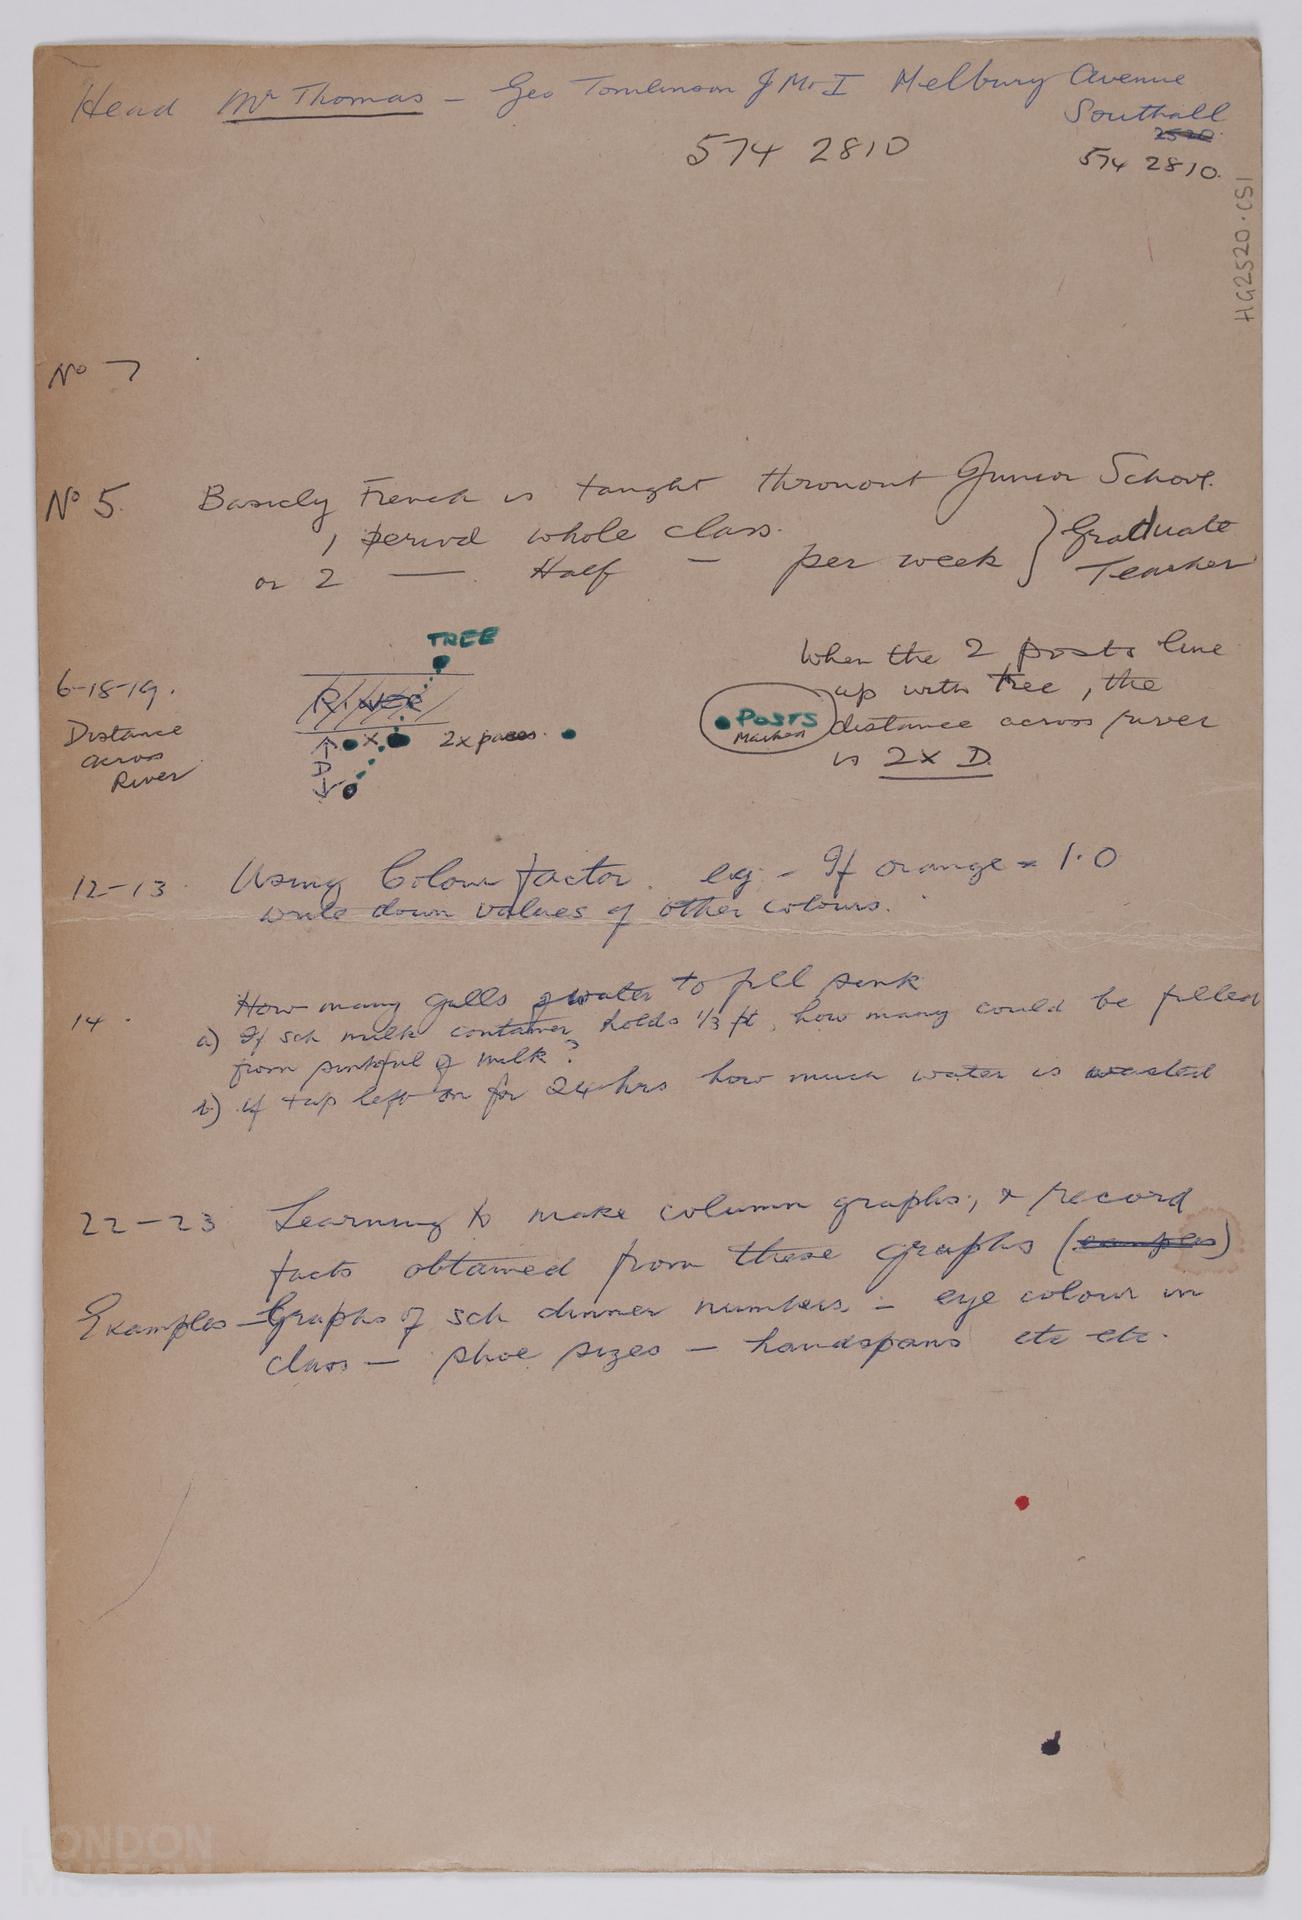 Head Mr Thomas - Geo Tomlinson J M & I Melbury Avenue
Southall
2520
574 2810
574 2810.
HG2520.CS1
No 7
No 5. Basicly French is taught thronout Junior School.
1 period whole class.
or 2 — Half - per week } Graduate Teacher
TREE
6-18-19.
Distance
across
River
RIVER
X 2x paces.
D
POSTS
Markers
When the 2 posts line
up with tree, the
distance across river
is 2 x D
12-13 Using Colour factor. eg. - If orange = 1.0
write down values of other colours.
14. How many galls of water to fill sink
a) If sch milk container holds 1/3 pt, how many could be filled
from sinkful of milk?
b) if tap left on for 24 hrs how much water is wasted
22-23 Learning to make column graphs, & record
facts obtained from these graphs (examples)
Examples - Graphs of sch dinner numbers - eye colour in
class - shoe sizes - handspans etc etc.
LONDON
MUSEUM